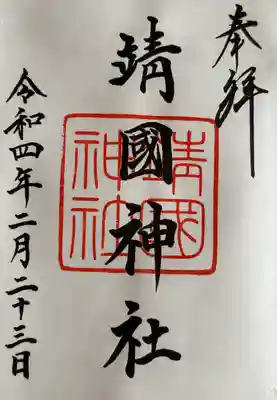 奉拝
靖國神社
靖國
神社
令和四年二月二十三日